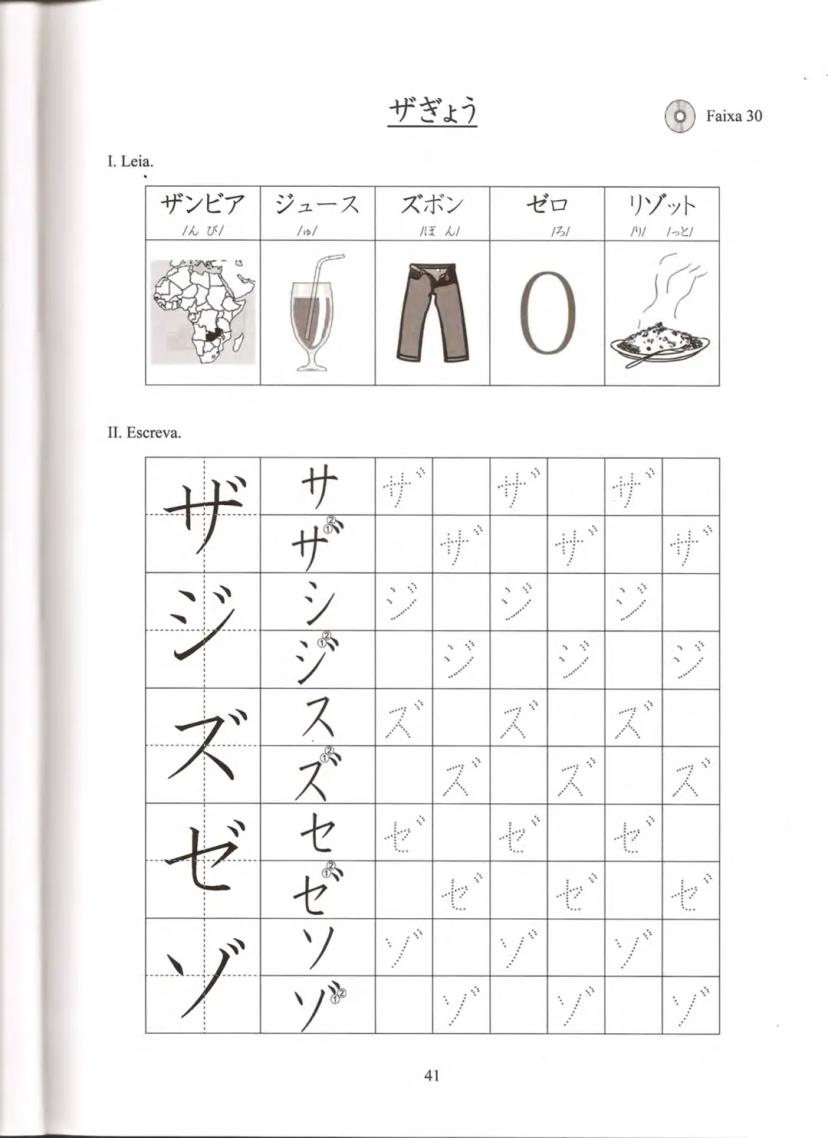 ザぎょう
Faixa 30
I. Leia.
ザンビア ジュース ズボン ゼロ リゾット
/ん び/ /ゅ/ /ぼ ん/ /ろ/ /り/ /っと/
0
II. Escreva.
ザ サ ザ ザ ザ
ザ ①② ザ ザ ザ
ジ シ ジ ジ ジ
ジ ①② ジ ジ ジ
ズ ス ズ ズ ズ
ズ ①② ズ ズ ズ
ゼ セ ゼ ゼ ゼ
ゼ ①② ゼ ゼ ゼ
ゾ ソ ゾ ゾ ゾ
ゾ ①② ゾ ゾ ゾ
41